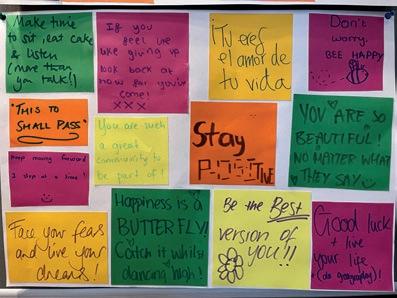 Make time
to sit, eat cake
& listen
(more than
you talk!!)
If you
feel like
like giving up
look back at
how far you've
come!
xxx
¡Tu eres
el amor de
tu vida
Don't
worry,
BEE HAPPY
"THIS TO
SHALL PASS"
You are such
a great
community to
be part of!
Stay
POSITIVE
YOU ARE SO
BEAUTIFUL!
NO MATTER WHAT
THEY SAY
Keep moving forward
1 step at a time!
Face your fears
and live your
dreams!
Happiness is a
BUTTERFLY!
Catch it whilst
dancing high!
Be the Best
version of
YOU!!
Good luck
+ live
your life
(do geography)!